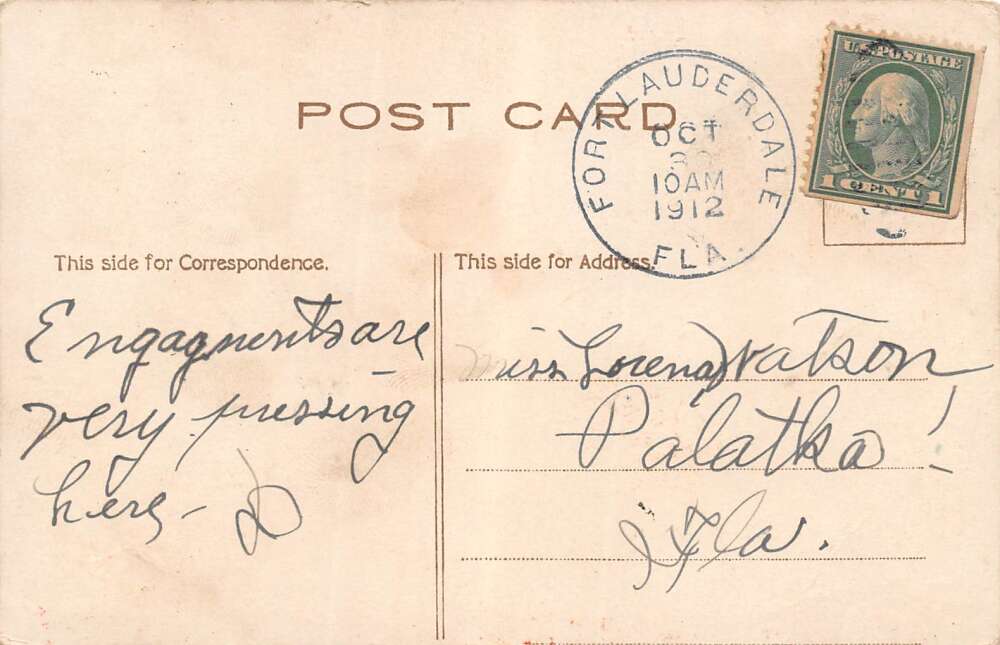 POST CARD
FORT LAUDERDALE
OCT
30
10 AM
1912
FLA.
U.S. POSTAGE
1 CENT 1
This side for Correspondence.
This side for Address.
Engagments are
very pressing
here -
Miss Lorena Watson
Palatka!
Fla.